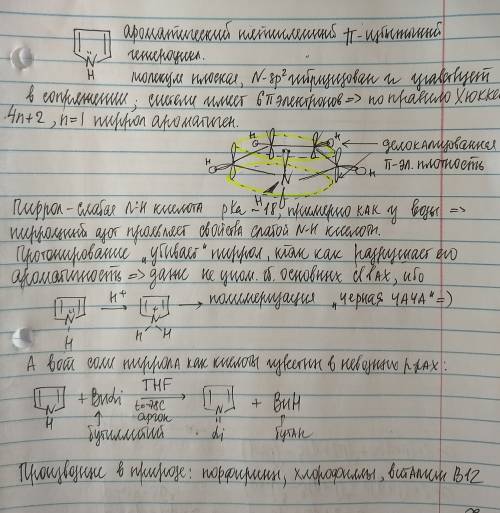 ароматический пятичленный π-избыточный
N
H
гетероцикл.
молекула плоская, N-sp² гибридизован и участвует
в сопряжении, система имеет 6π электронов => по правилу Хюккеля
4n+2, n=1 пиррол ароматичен.
делокализованная
π-эл. плотность
H H H H N H
Пиррол - слабая N-H кислота pKa ~ 18, примерно как у воды =>
пиррольный азот проявляет свойства слабой N-H кислоты.
Протонирование "убивает" пиррол, так как разрушает его
ароматичность => даже не упом. об основных св-вах, ибо
N H H⁺ N⁺ H H полимеризация "черная ЧАЧА" =)
А вот соли пиррола как кислоты известны в неводных р-рах:
N H + BuLi THF t=-78C аргон N Li + BuH
бутиллитий бутан
Производные в природе: порфирины, хлорофиллы, витамин B12